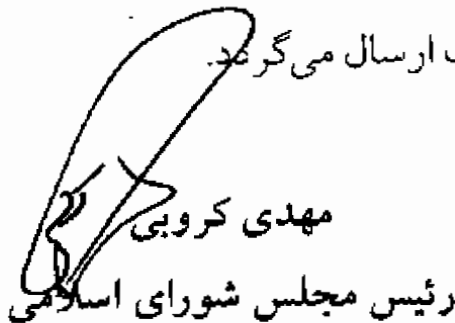 ارسال می‌گردد.
مهدی کروبی
رئیس مجلس شورای اسلامی